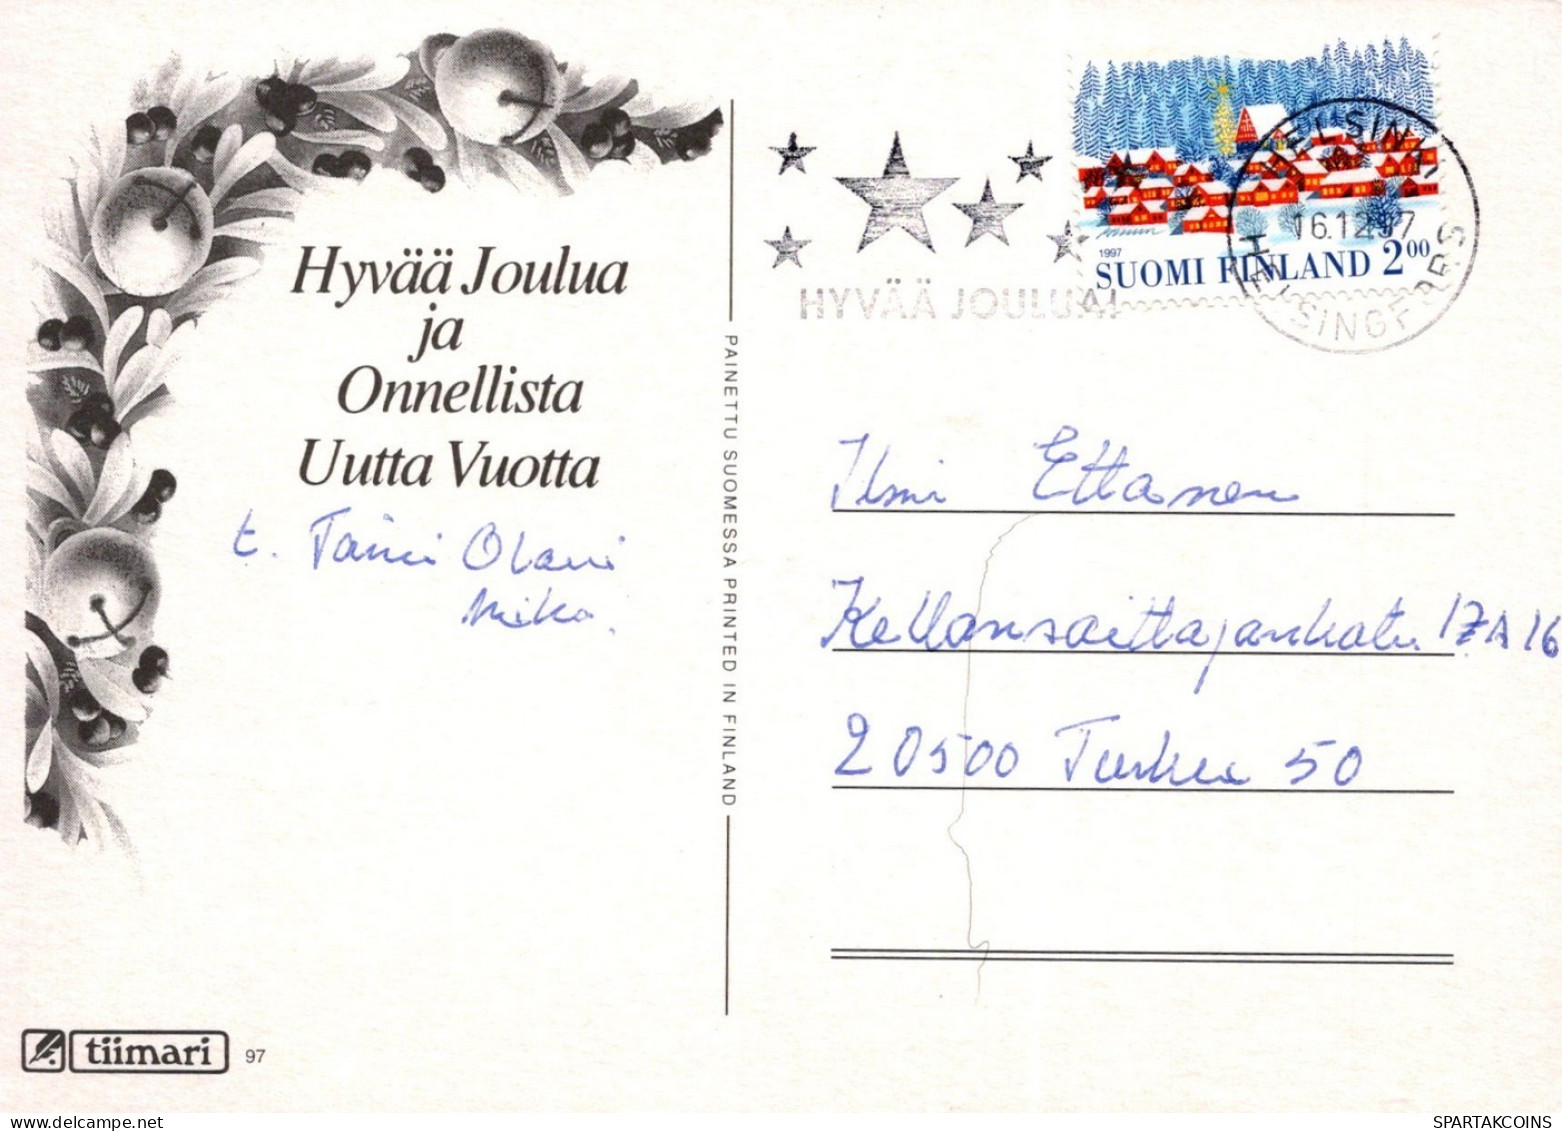 Hyvää Joulua
ja
Onnellista
Uutta Vuotta
t. Taimi Olavi
Mika.
tiimari 97
PAINETTU SUOMESSA PRINTED IN FINLAND
HYVÄÄ JOULUA!
1997
SUOMI FINLAND 2.00
HELSINKI
16.12.97
HELSINGFORS
Ilmi Ettanen
Kellonsoittajankatu 17 A 16
20500 Turku 50
SPARTAKCOINS